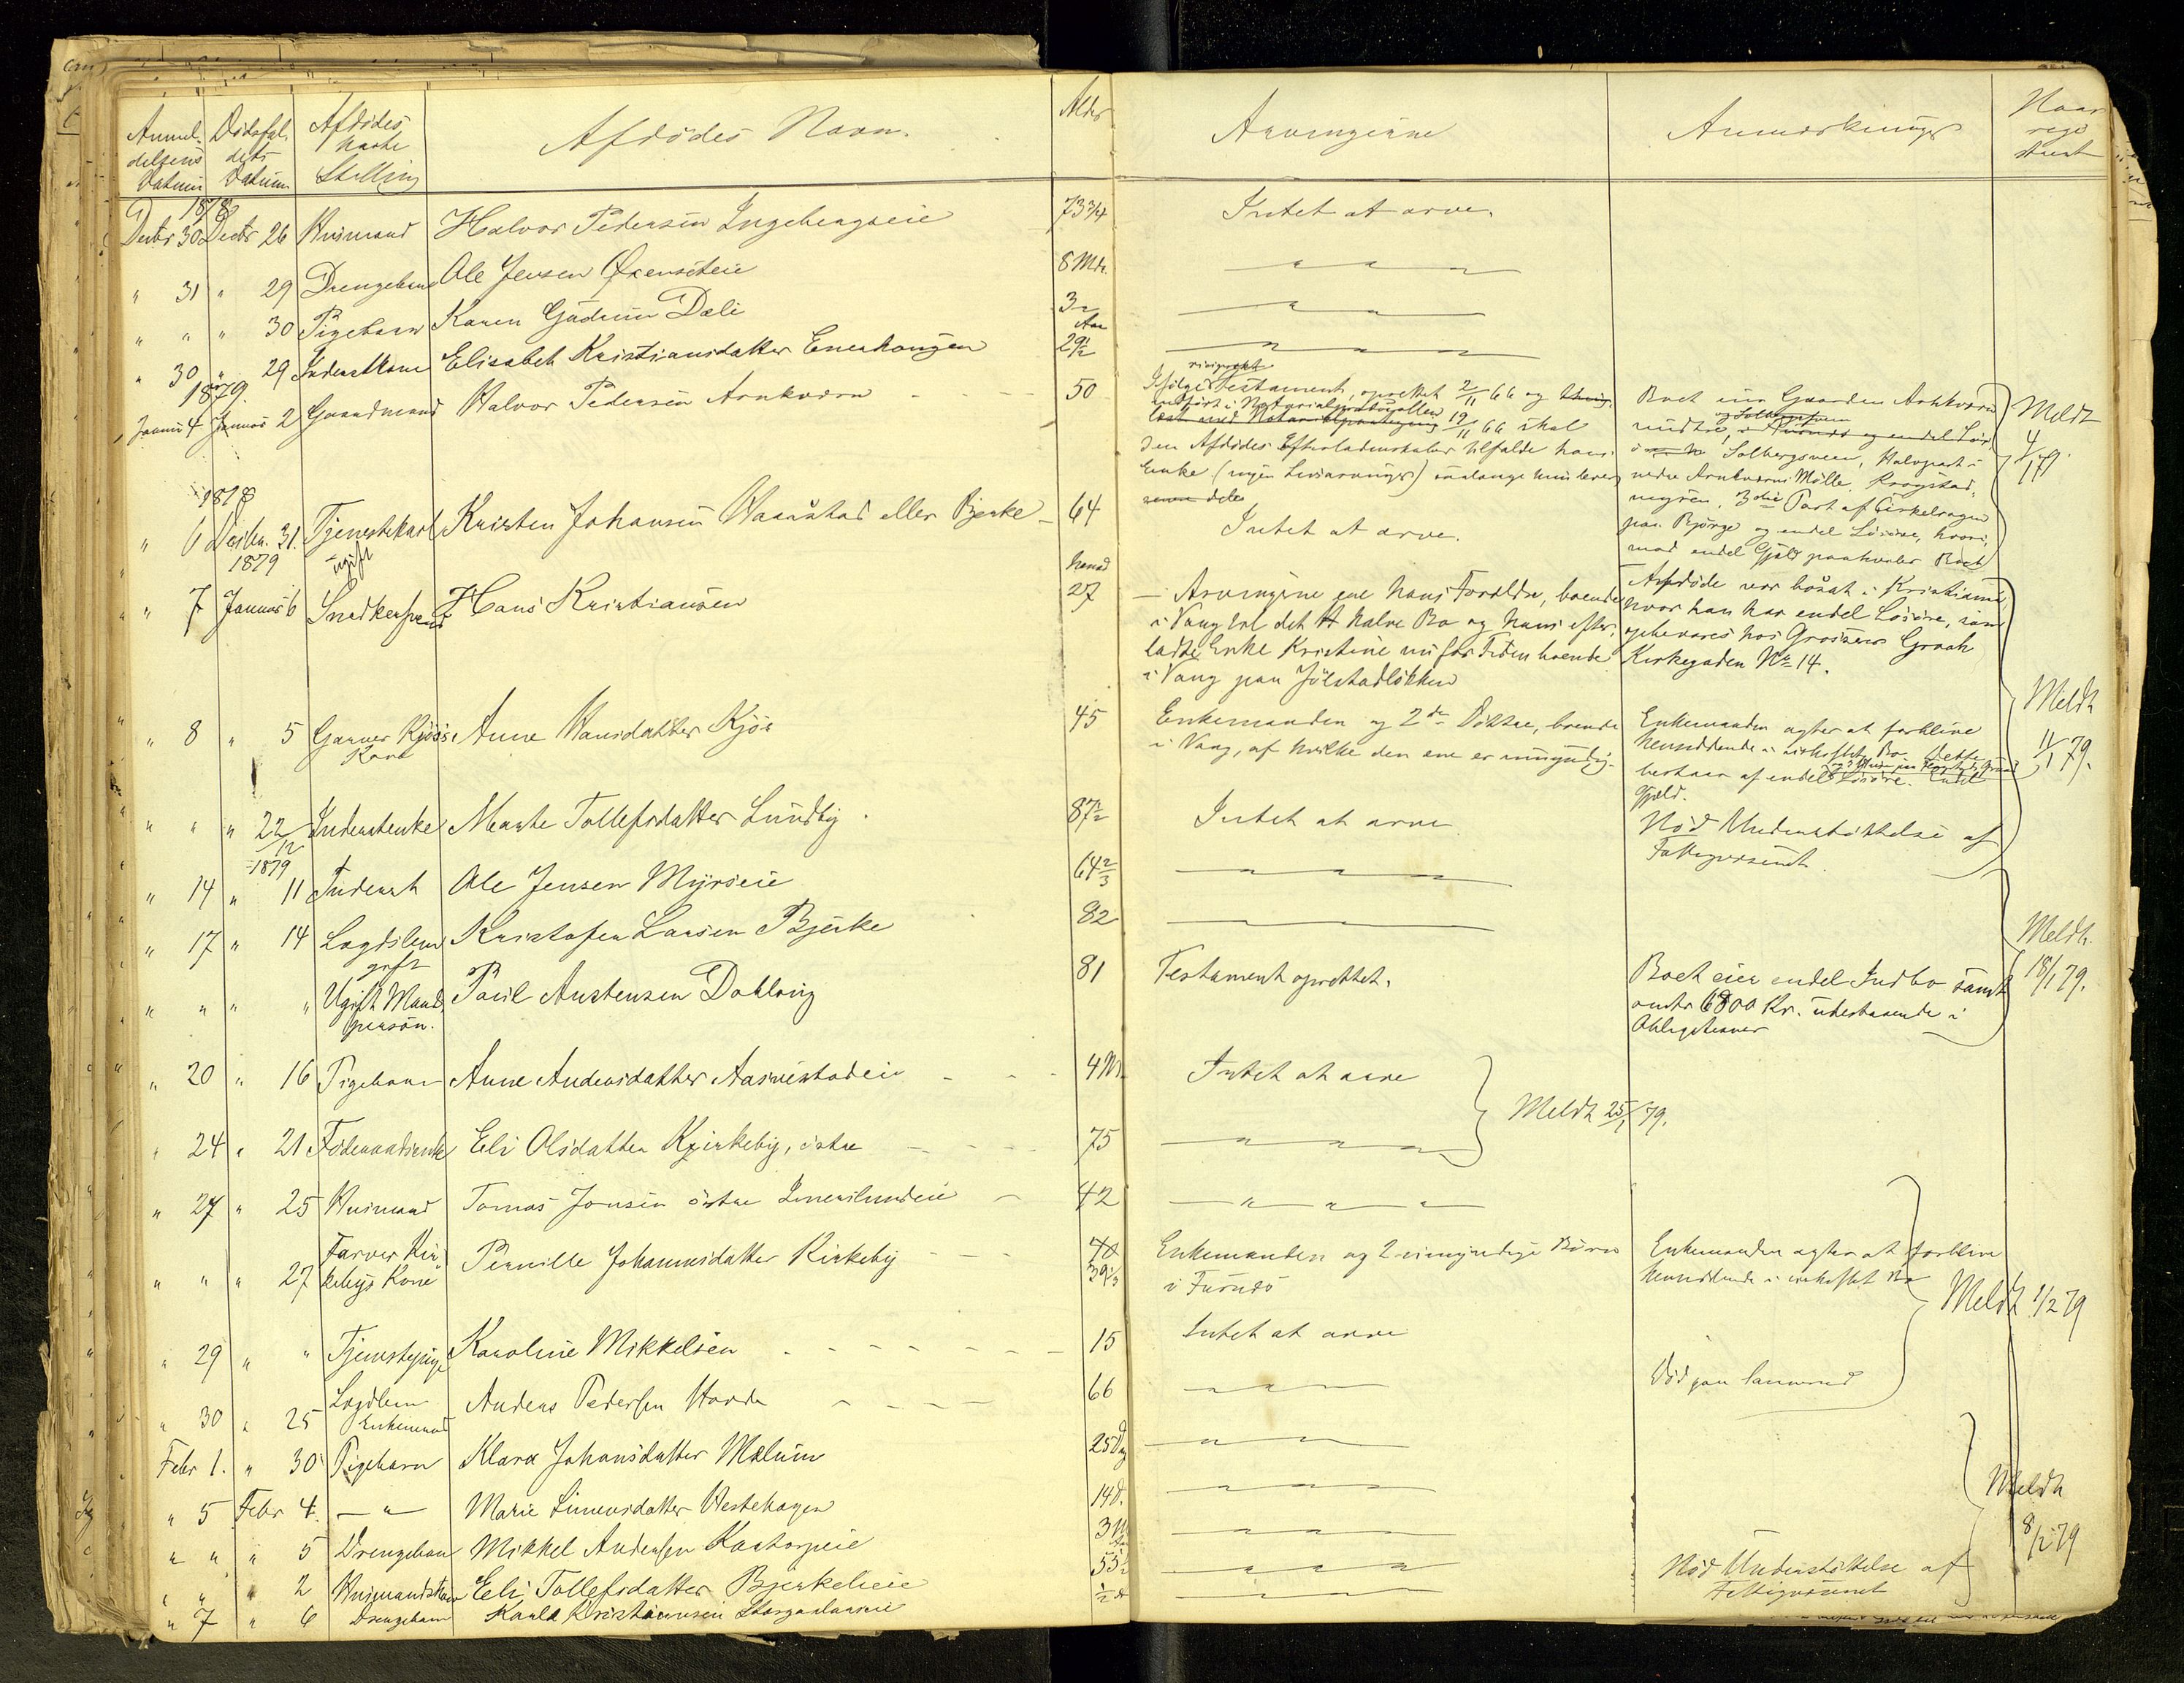 Anmel- Dødsfal- Afdødes Afdødes Navn. Alder Arvingerne Anmærkninger Naar
delsens dets Navn regi
Datum Datum Stilling strert
1878
Decbr 30 Decbr 26 Huusmand Halvor Pedersen Ingebergseie 73 3/4 Intet at arve.
" 31 " 29 Drengebarn Ole Jensen 8 Mdr. — " " "
" " " 30 Pigebarn Karen Gudrun Dæli 3 " — " —
" 30 " 29 Inderstkone Elisabeth Kristiansdatter Enerhaugen Aar 29 1/2 — " " "
1879.
Januar 4 Januar 2 Gaardmand Halvor Pedersen Arnkværn 50
Ifølge Testament, oprettet 2/11 66 og
indført i Notarialprotokollen 19/11 66 skal
den Afdødes Efterladenskaber tilfalde hans
Enke (ingen Livsarvinger) saalænge hun lever
Boet eier Gaarden Arnkværn
nedre
Solbergsveen, Halvpart i
nedre Arnkværns Mølle, Krogstad-
myren, 3die Part af Cirkelsagen
paa Bjørge og endel Løsøre, hvori-
mod endel Gjæld paahviler Boet
Meldt
4/1 79.
1878
" 6 Decbr. 31. Tjenestekarl Kristen Johansen Haarstad eller Bjerke 64 Intet at arve.
1879 ugift
" 7 Januar 6 Snedkersvend Hans Kristiansen 27
— Arvingerne ere hans Forældre, boende
i Vang til det halve Bo og hans efter-
ladte Enke Kristine nu for Tiden boende
i Vang paa Jølstadløkken
Afdøde var bosat i Kristiania,
hvor han har endel Løsøre, som
opbevares hos Grosserer Graah
Kirkegaden No 14.
" 8 " 5 Garver Kjøs's Anne Hansdatter Kjøs 45
Kone
Enkemanden og 2de Døttre, boende
i Vang, af hvilke den ene er umyndig.
Enkemanden agter at forblive
hensiddende i uskiftet Bo. Dette
bestaar af endel Løsøre. Endel
Gjæld.
Meldt
11/1 79.
" " " 22/12 Inderstenke Marte Tollefsdatter Lundby 87 1/2 Intet at arve Nød Understøttelse af
Fattigvæsenet.
1879
" 14 " 11 Inderst Ole Jensen Myrseie 64 2/3 — " " "
" 17 " 14 Lægdslem Kristofer Larsen Bjerke 82 —
gift
" " " " Ugift Mands- Paul Austensen Dobloug 81 Testament oprettet.
person.
Boet eier endel Indbo samt
omtr 6800 Kr. udestaaende i
Obligationer
Meldt.
18/1 79.
" 20 " 16 Pigebarn Anne Andersdatter 4 M. Intet at arve
Meldt 25/1 79.
" 24 " 21 Føderaadsenke Eli Olsdatter Kjirkeby, østre 75 — " " "
" 27 " 25 Huusmand Tomas Jonsen østre Imerslundeie 42 — " " "
" " " 27 Farver Kir- Pernille Johannesdatter Kirkeby 39 1/3
kebys Kone
Enkemanden og 2 umyndige Børn
i Furnæs
Enkemanden agter at forblive
hensiddende i uskiftet Bo
Meldt 1/2 79
" 29 " " Tjenestepige Karoline Mikkelsen 15 Intet at arve
" 30 " 25 Lægdlem Anders Pedersen 66 — " " — Død paa Sanerud
Enkemand
Febr 1. " 30 Pigebarn Klara Johansdatter Mælum 25 Dg — " "
" 5 Febr 4. — " — Marie Simensdatter Vestehagen 14 d. — " " "
" " " 5 Drengebarn Mikkel Andersen 3 M — " " "
" " " 2 Huusmandskone Eli Tollefsdatter Bjerkelieie 55 1/2 — " " " Nød Understøttelse af
Fattigvæsenet
" 7 " 6 Drengebarn Karl Kristiansen 1/2 d — " "
Meldt
8/2 79